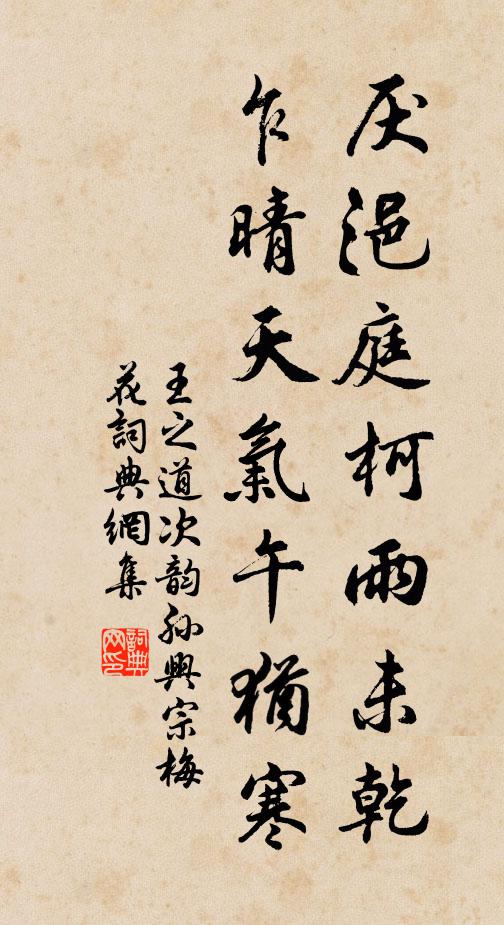 厌浥庭柯雨未乾
乍晴天氣午猶寒
王之道次韵孙興宗梅
花詞典網集
詞典
网印